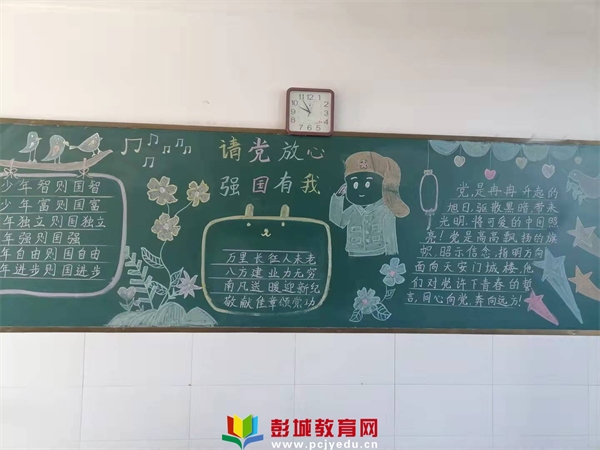 请党放心
强国有我
少年智则国智
少年富则国富
年独立则国独立
年强则国强
年自由则国自由
年进步则国进步
万里长征人未老
八方建业力无穷
南凡送暖迎新纪
敬献佳章颂党功
党,是冉冉升起的
旭日,驱散黑暗,带来
光明,将可爱的中国照
亮!党是高高飘扬的旗
帜,昭示信念,指明方向
面向天安门城楼,他
们对党许下青春的誓
言,同心向党,奔向远方!
彭城教育网
www.pcjyedu.cn